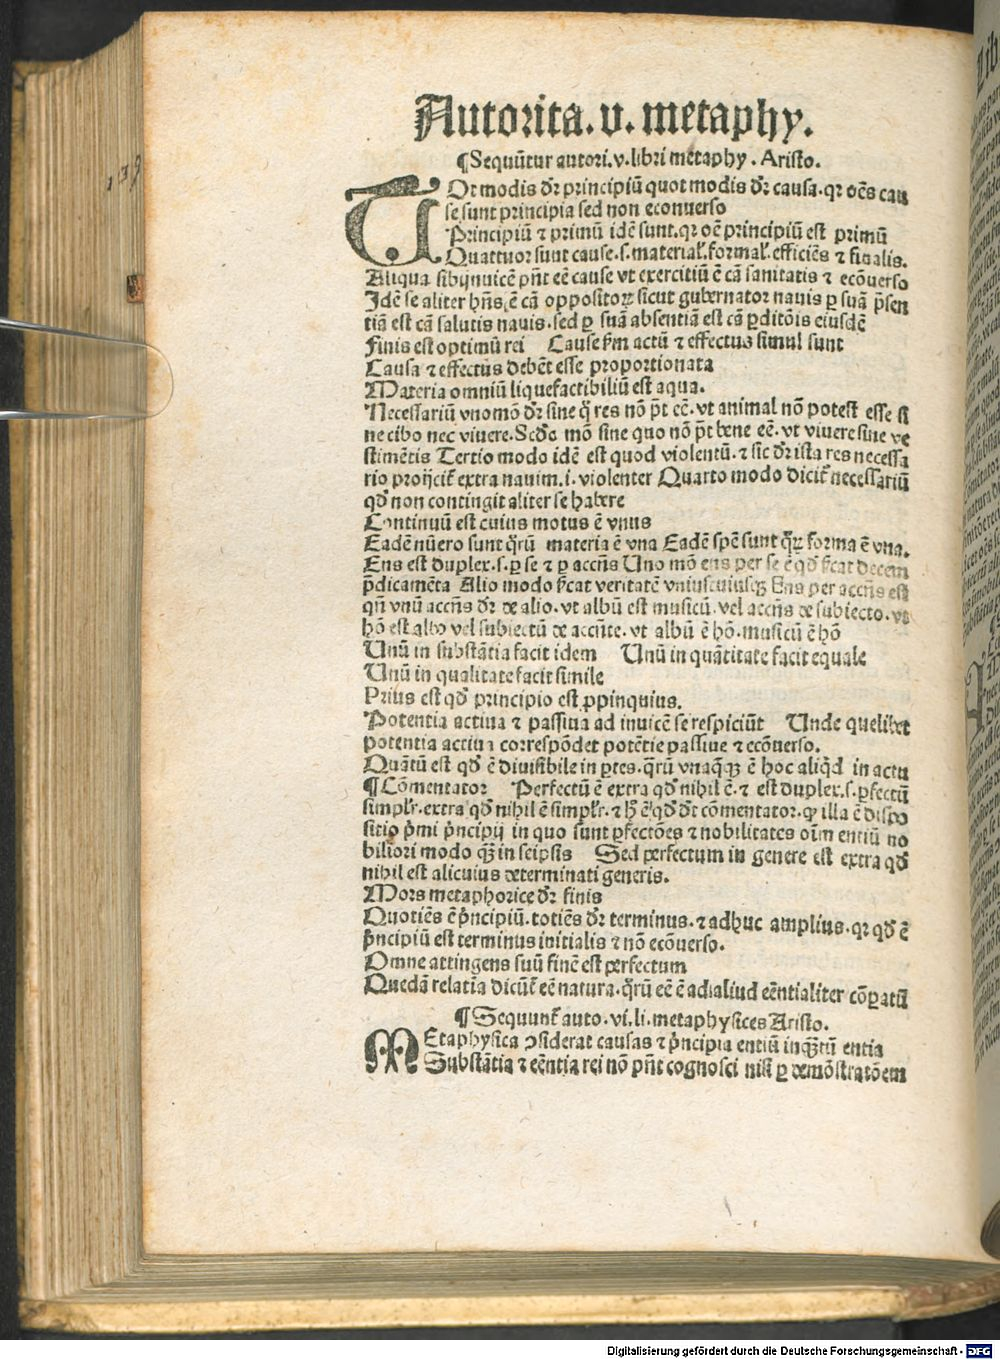 139
Autorita. v. metaphy.
¶ Sequūtur autori. v. libri metaphy. Aristo.
TOt modis dr̄ principiū quot modis dr̄ causa. qꝛ oēs cau
se sunt principia sed non econuerso
Principiū ⁊ primū idē sunt. qꝛ oē principiū est primū
Quattuor sunt cause. s. material'. formal'. efficiēs ⁊ finalis.
Aliqua sibijnuicē pn̄t eē cause vt exercitiū ē cā sanitatis ⁊ ecōuerso
Idē se aliter hn̄s ē cā oppositoꝝ sicut gubernator nauis ꝑ suā p̄sen
tiā est cā salutis nauis. sed ꝑ suā absentiā est cā ꝑditōis eiusdē
Finis est optimū rei Cause ẜm actū ⁊ effectus simul sunt
Causa ⁊ effectus debēt esse proportionata
Materia omniū liquefactibiliū est aqua.
Necessariū vnomō dr̄ sine q̊ res nō pōt eē. vt animal nō potest esse si
ne cibo nec viuere. Scd̄o mō sine quo nō pōt bene eē. vt viuere sine ve
stimētis Tertio modo idē est quod violentū. ⁊ sic dr̄ ista res necessa
rio proijcit̄ extra nauim. i. violenter Quarto modo dicit̄ necessariū
qd̄ non contingit aliter se habere
Continuū est cuius motus ē vnus
Eadē nūero sunt q̄rū materia ē vna Eadē spē sunt q̄ꝝ forma ē vna.
Ens est duplex. s. ꝑ se ⁊ ꝑ accn̄s Uno mō ens per se ē qd̄ ẜcat decem
p̄dicamēta Alio modo ẜcat veritatē vniuscuiusqꝫ Ens per accn̄s est
qn̄ vnū accn̄s dr̄ de alio. vt albū est musicū. vel accn̄s de subiecto. vt
hō est albꝰ vel subiectū de accn̄te. vt albū ē hō. musicū ē hō
Unū in substātia facit idem Unū in quātitate facit equale
Unū in qualitate facit simile
Prius est qd̄ principio est ꝓpinquius.
Potentia actiua ⁊ passiua ad inuicē se respiciūt Unde quelibet
potentia actiua correspōdet potētie passiue ⁊ ecōuerso.
Quātū est qd̄ ē diuisibile in ꝑtes. q̄rū vnaq̄qꝫ ē hoc aliq̄d in actu
¶ Cōmentator Perfectū ē extra qd̄ nihil ē. ⁊ est duplex. s. ꝑfectū
simplr̄. extra qd̄ nihil ē simplr̄. ⁊ hͦ ē qd̄ dt̄ cōmentator. ꝙ illa ē dispo
sitio p̄mi p̄ncipij in quo sunt ꝑfectōes ⁊ nobilitates oīm entiū no
biliori modo qꝫ in seipsis Sed perfectum in genere est extra qd̄
nihil est alicuius determinati generis.
Mors metaphorice dr̄ finis
Quotiēs ē p̄ncipiū. totiēs dr̄ terminus. ⁊ adhuc amplius. qꝛ qd̄ ē
p̄ncipiū est terminus initialis ⁊ nō ecōuerso.
Omne attingens suū finē est perfectum
Quedā relatīa dicūt̄ eē natura. q̄rū eē ē ad aliud eēntialiter cōꝑatū
¶ Sequunt̄ auto. vi. li. metaphysices Aristo.
MEtaphysica ↄsiderat causas ⁊ p̄ncipia entiū inqꝫtū entia
Substātia ⁊ eēntia rei nō pn̄t cognosci nisi ꝑ demōstratōem
Digitalisierung gefördert durch die Deutsche Forschungsgemeinschaft - DFG